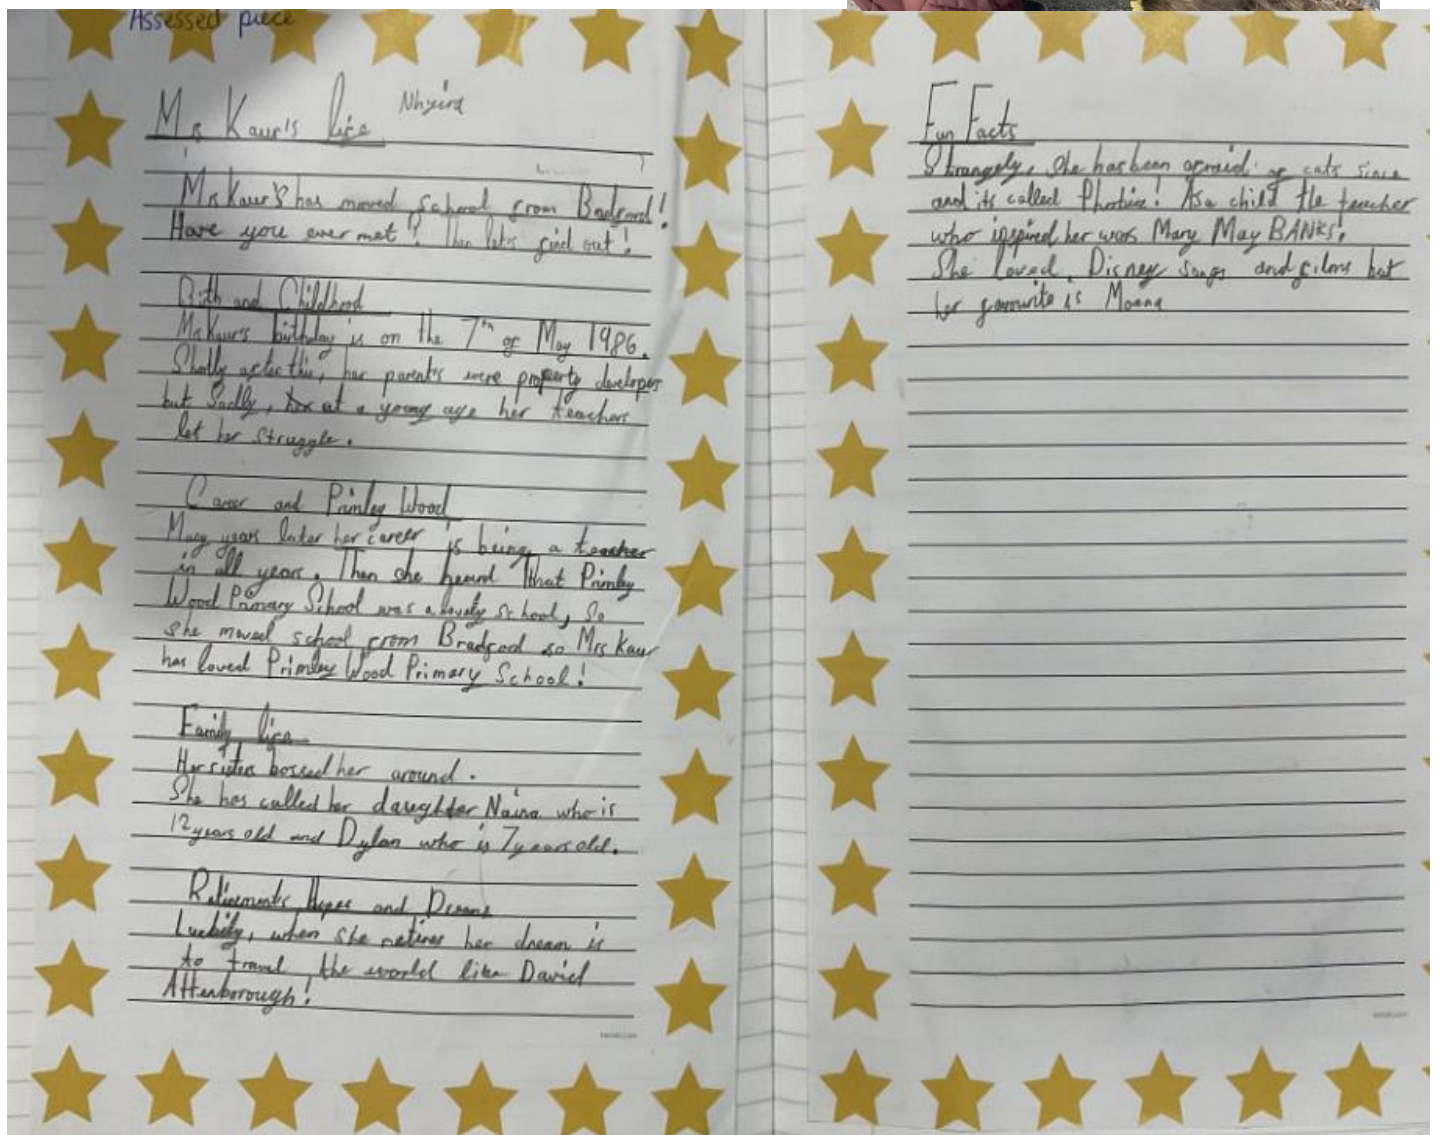 Assessed piece
Mrs Kaur's life Nhyira
Mrs Kaur's has moved school from Bradford!
Have you ever met? Then let's find out!
Birth and Childhood
Mrs Kaur's birthday is on the 7th of May 1986.
Shortly after this, her parent's were property developers
but Sadly, at a young age her teachers
let her struggle.
Career and Primley Wood
Many years later her career is being a teacher
in all years. Then she heard that Primley
Wood Primary School was a lovely school, so
she moved school from Bradford so Mrs Kaur
has loved Primley Wood Primary School!
Family life
Her sisters bossed her around.
She has called her daughter Naina who is
12 years old and Dylan who is 7 years old.
Retirements Hopes and Dreams
Luckily, when she retires her dream is
to travel the world like David
Attenborough!
Fun Facts
Strangely, She has been afraid of cats since
and its called Phobia! As a child the teacher
who inspired her was Mary May BANKS!
She loved Disney songs and films but
her favourite is Moana
twinkl.com
twinkl.com